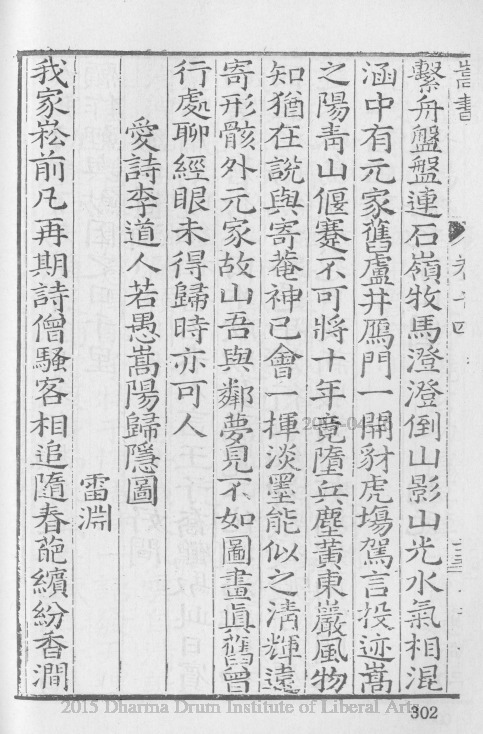 嵩書
繫舟盤盤連石嶺牧馬澄澄倒山影山光水氣相混
涵中有元家舊廬井鴈門一開豺虎場駕言投迹嵩
之陽青山偃蹇不可將十年竟墮兵塵黃東巖風物
知猶在說與寄菴神已會一揮淡墨能似之淸輝遠
寄形骸外元家故山吾與鄰夢見不如圖畫眞舊曾
行處聊經眼未得歸時亦可人
愛詩李道人若愚嵩陽歸隱圖
雷淵
我家崧前凡再期詩僧騷客相追隨春葩繽紛香澗
2015 Dharma Drum Institute of Liberal Arts
302